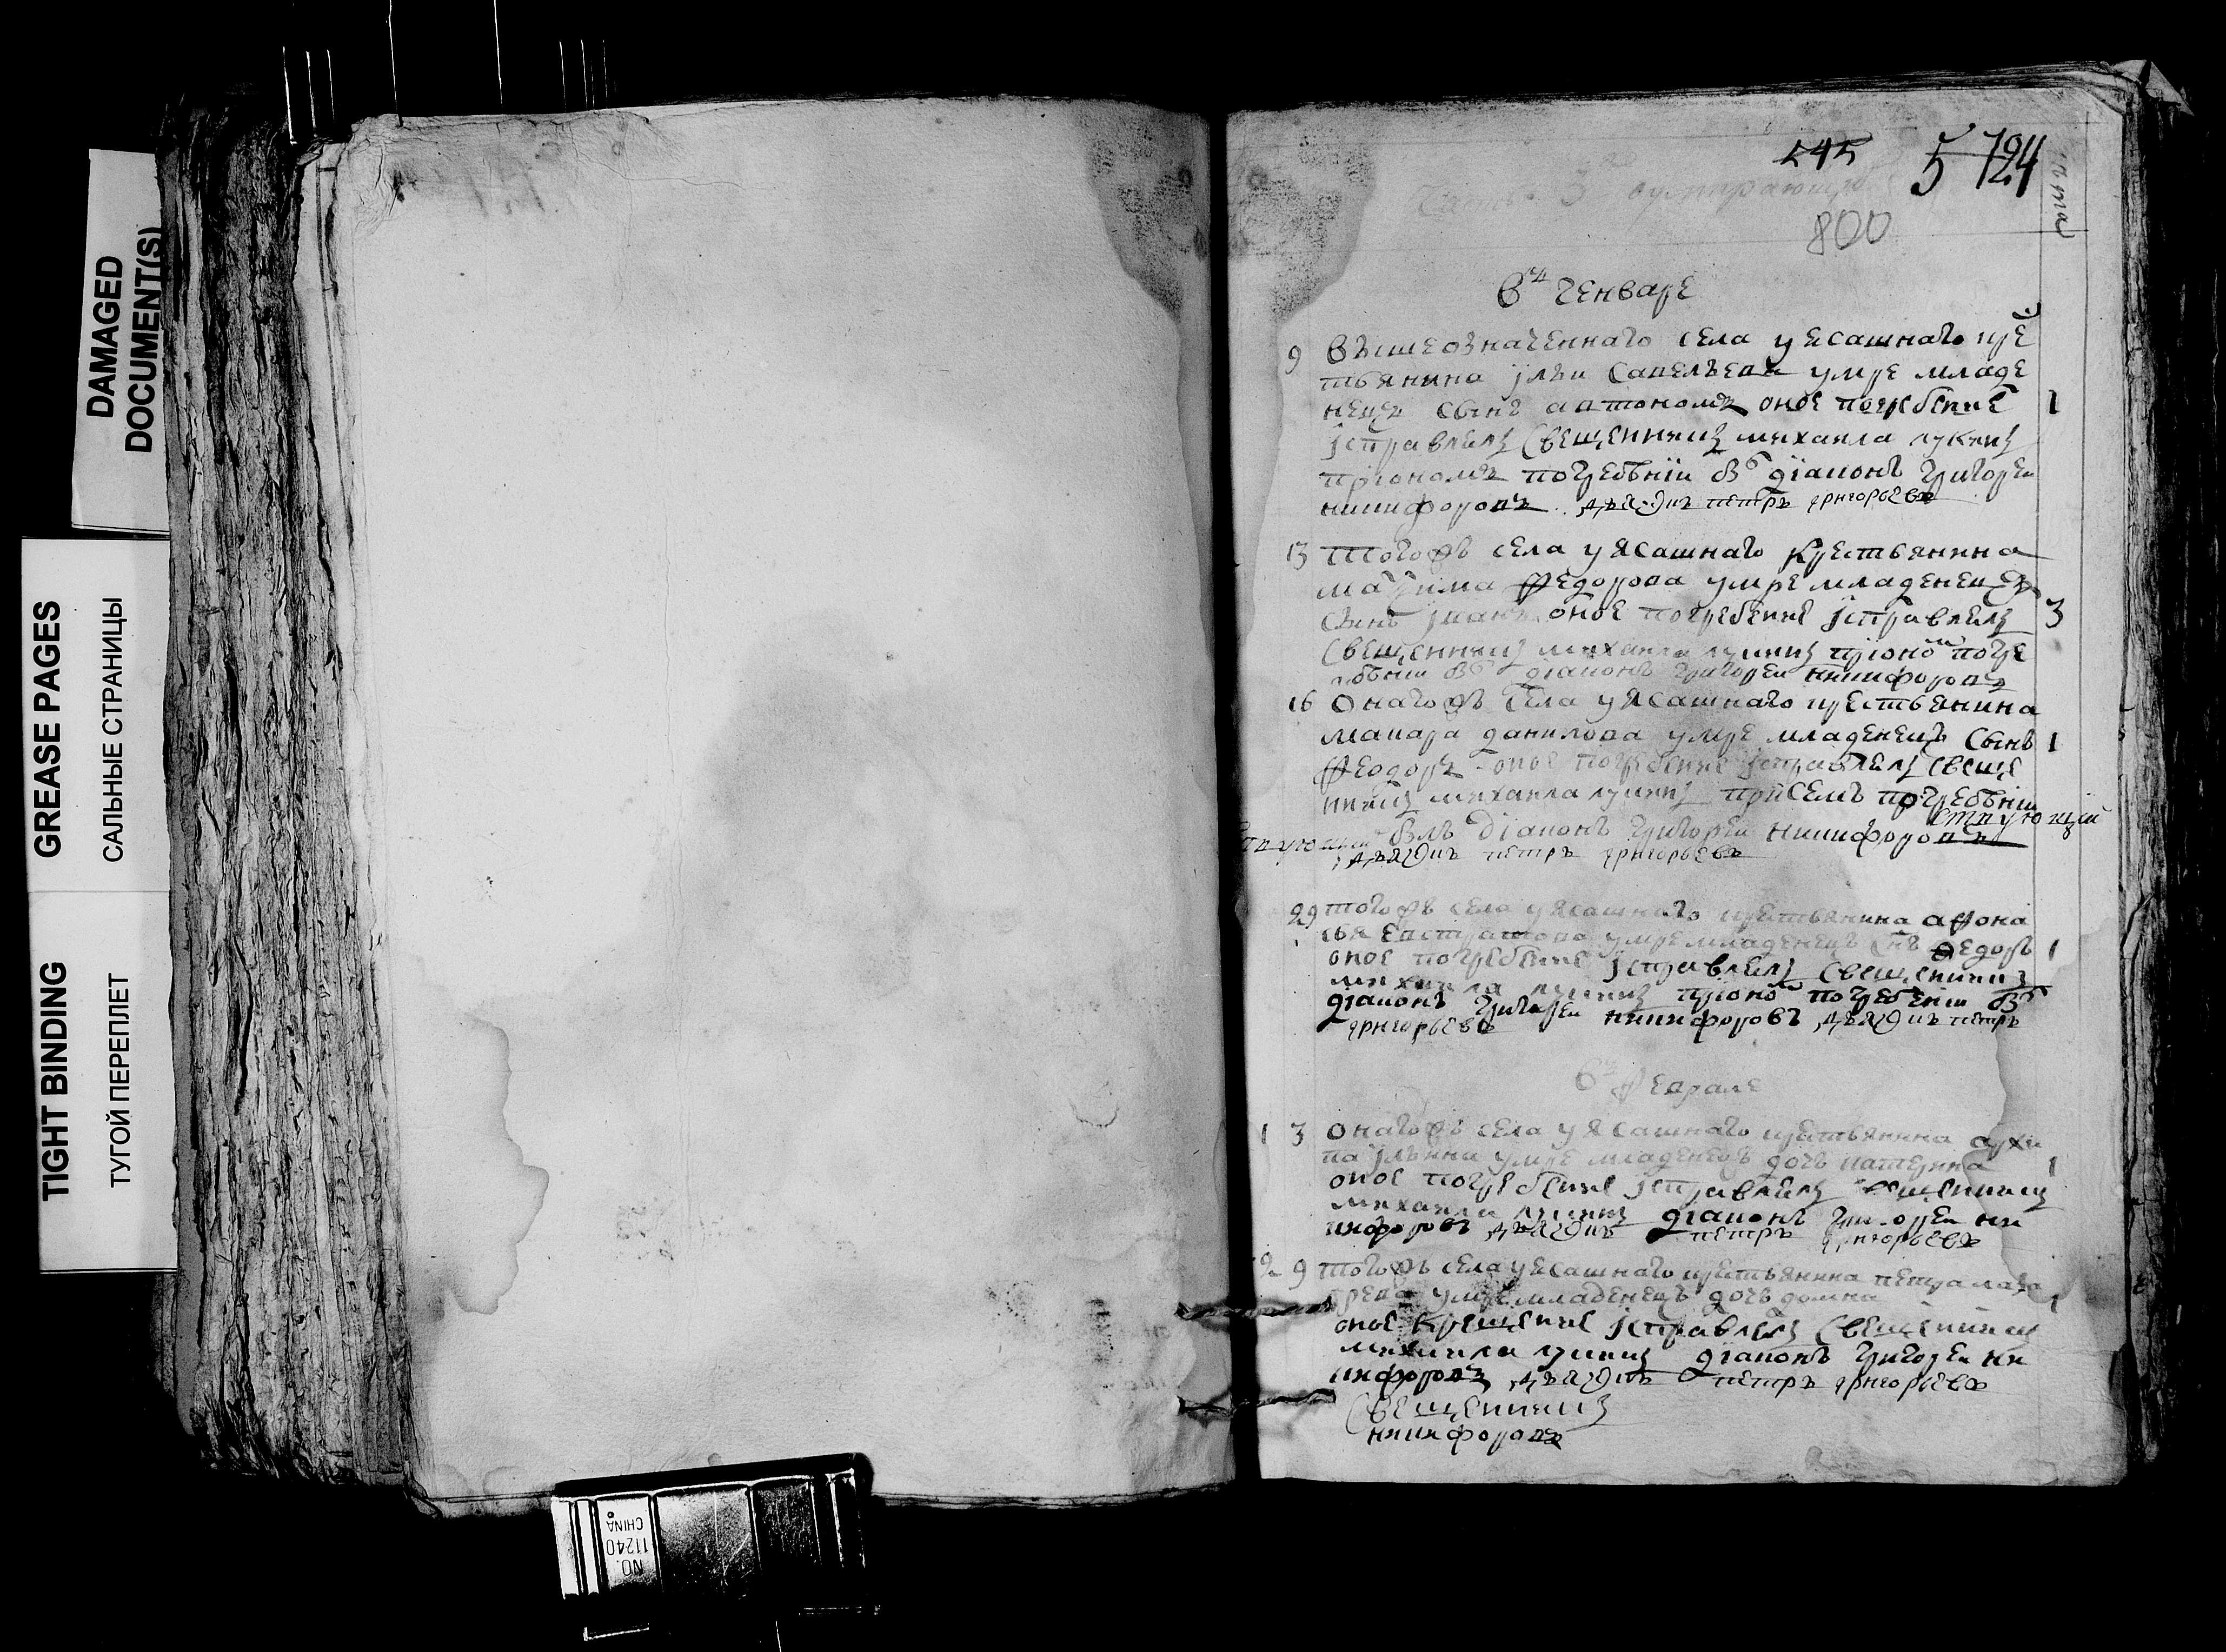 DAMAGED
DOCUMENT(S)
GREASE PAGES
САЛЬНЫЕ СТРАНИЦЫ
TIGHT BINDING
ТУГОЙ ПЕРЕПЛЕТ
NO.
11240
CHINA
545 5 724
800
3 умирающих
лета
Вц генваре
9 вышеозначеннаго села уясашнаго кре
стьянина ильи савельева умре младе
нецъ сынъ автономъ оное погребение 1
исправлялъ священникъ михаила лукинъ
приономъ погребении вб диаконъ григореи
никифоровъ дьячокъ петръ григорьевъ
13 тогожъ села уясашнаго крестьянина
маѯима федорова умре младенецъ
сынъ иванъ оное погребение исправлялъ 3
священникъ михаила лукинъ прионом погре
бении вб диаконъ григореи никифоровъ
16 онагожъ села уясашнаго крестьянина
макара данилова умре младенецъ сынъ 1
феодоръ оное погребение исправлялъ свяще
никъ михаила лукинъ присемъ погребении
былъ диаконъ григореи никифоровъ
дьячокъ петръ григорьевъ
29 тогожъ села уясашнаго крестьянина афона
сья евстратова умре младенецъ снъ федоръ 1
оное погребение исправлялъ священникъ
михаила лукинъ прионом погребении вб
диаконъ григореи никифоровъ дьячокъ петръ
григорьевъ
Вц феврале
13 онагожъ села уясашнаго крестьянина архи
па ильина умре младенецъ дочь катерина 1
оное погребение исправлялъ священникъ
михаила лукинъ диаконъ григореи ни
кифоровъ дьячокъ петръ григорьевъ
29 тогожъ села уясашнаго крестьянина петра
умре младенецъ дочь домна 1
оное крещение исправлялъ священникъ
михаила лукинъ диаконъ григореи ни
кифоровъ дьячокъ петръ григорьевъ
священникъ
никифоровъ